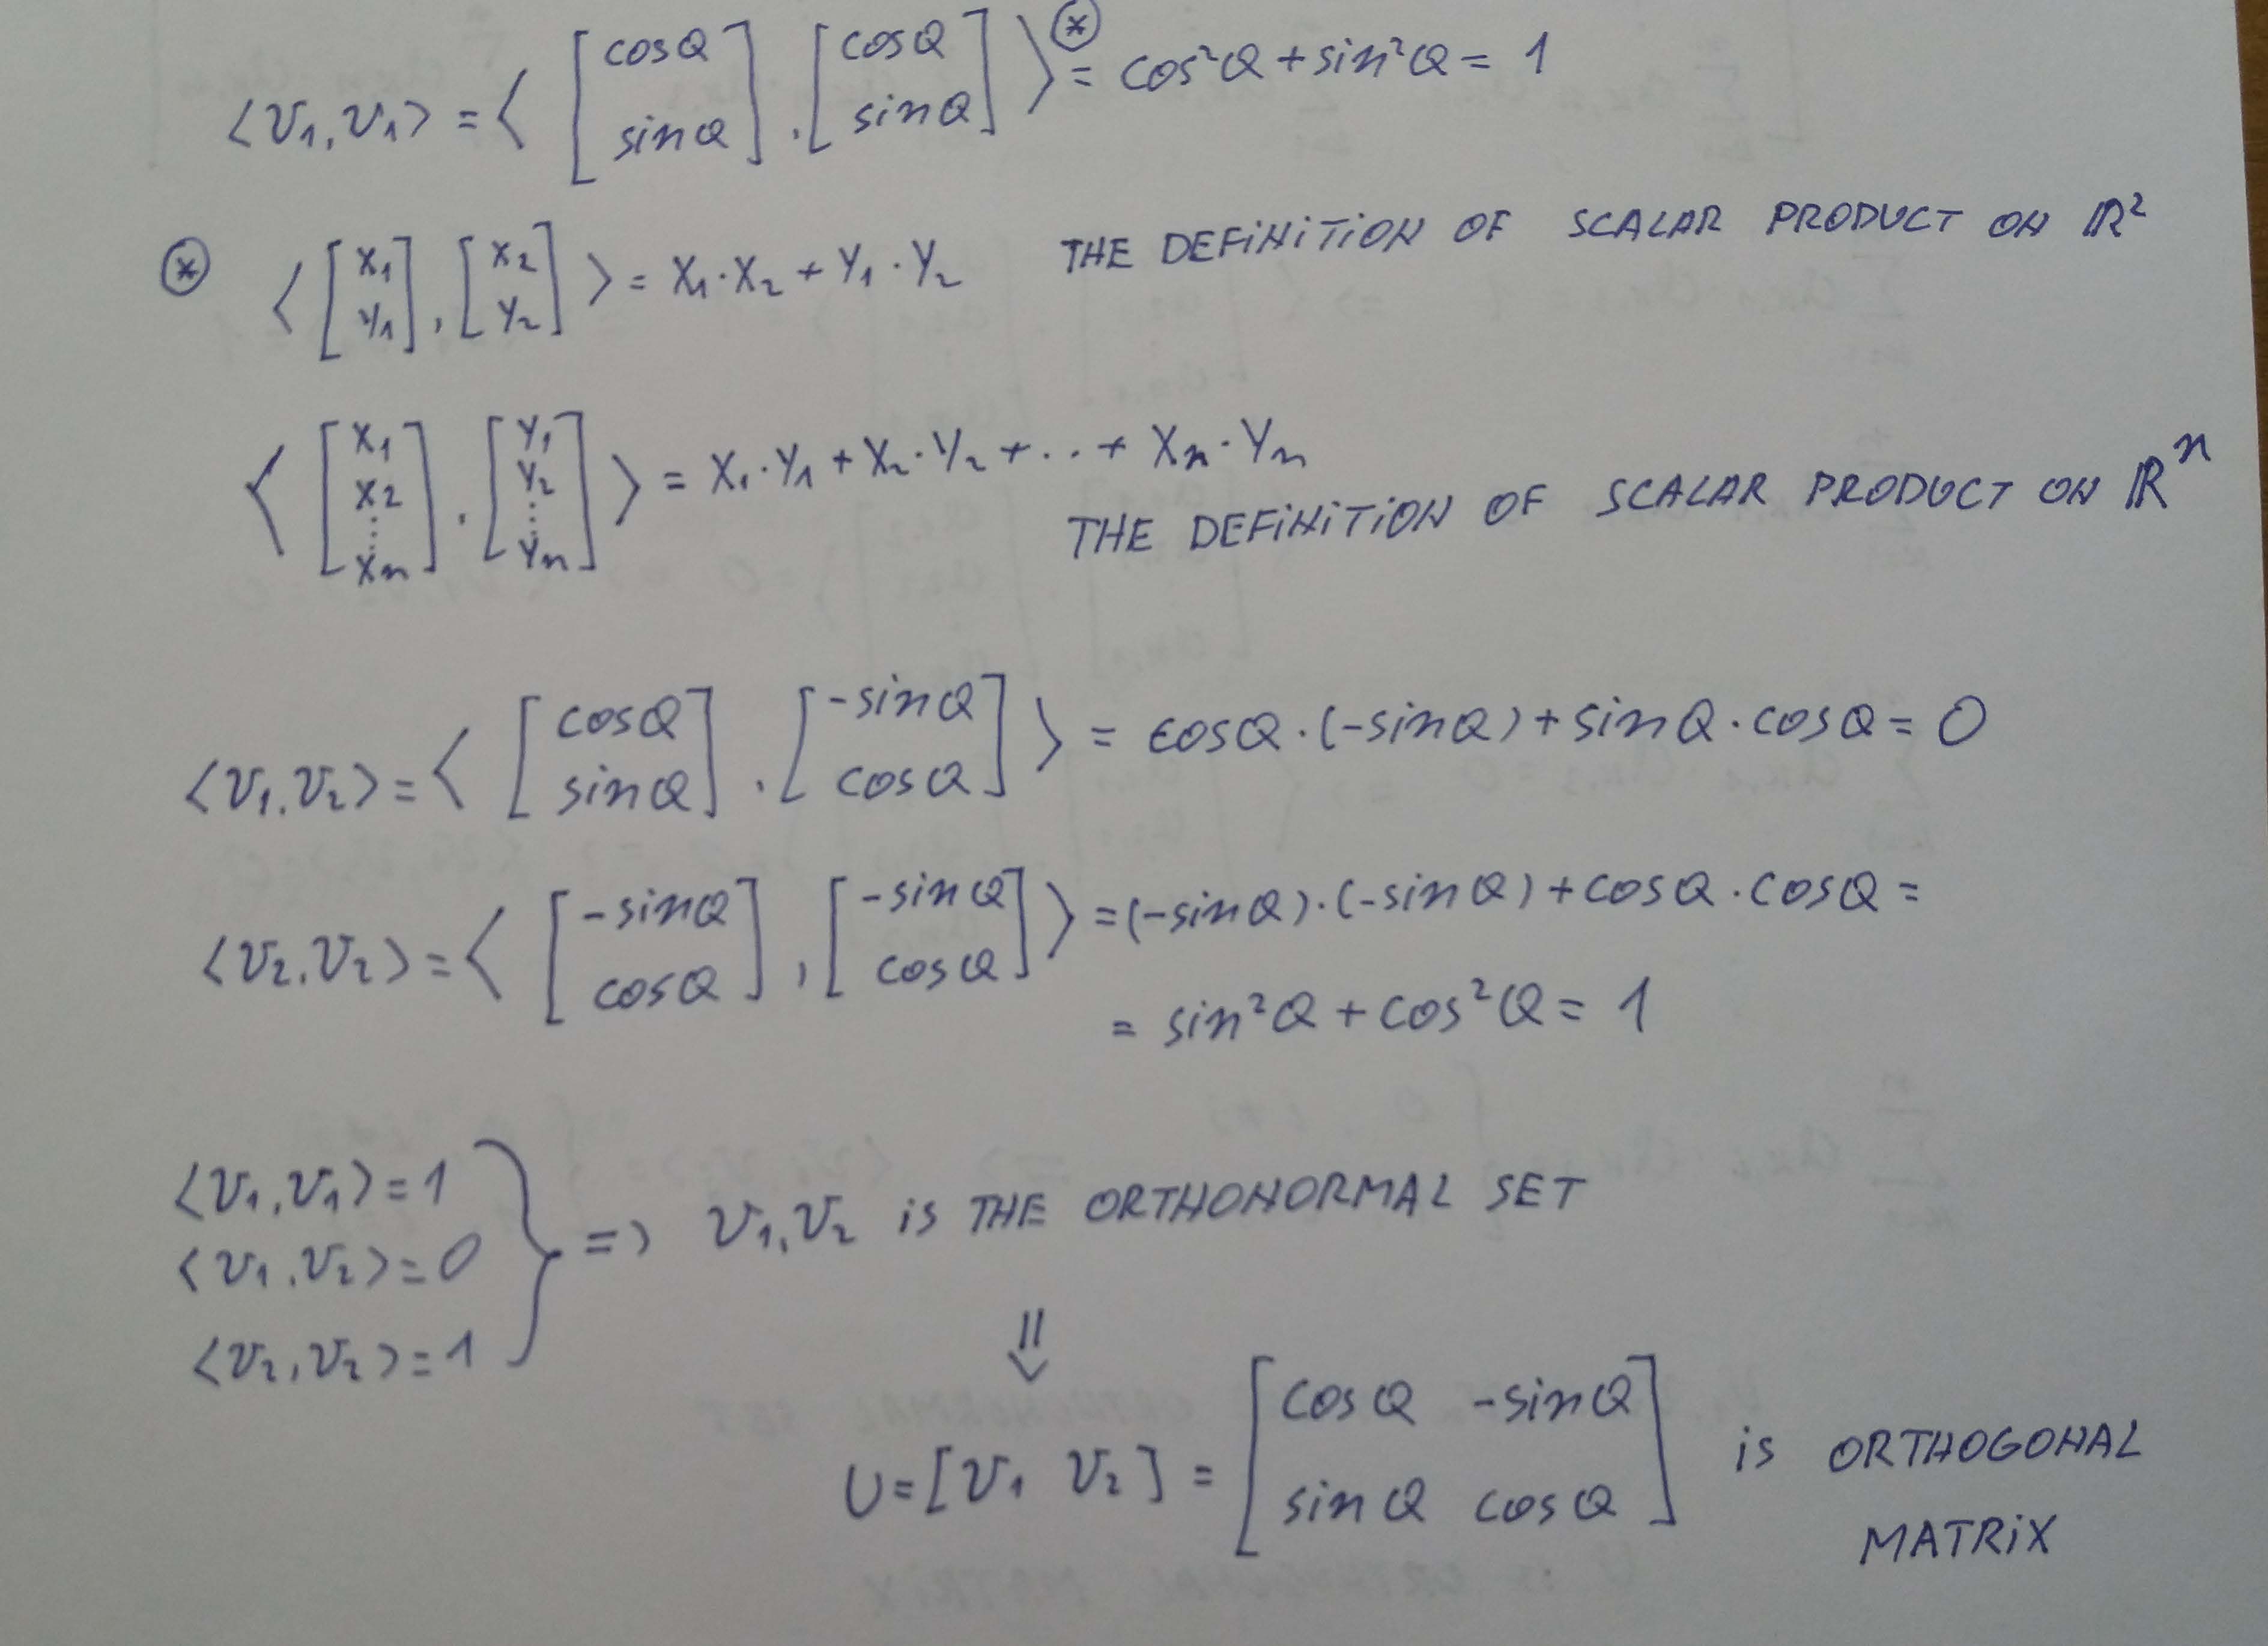 <v₁, v₁> = < [cosQ sinQ] , [cosQ sinQ] > ⊛ = cos²Q + sin²Q = 1
⊛ < [x₁ y₁] , [x₂ y₂] > = x₁·x₂ + y₁·y₂ THE DEFINITION OF SCALAR PRODUCT ON ℝ²
< [x₁ x₂ ⋮ xₙ] , [y₁ y₂ ⋮ yₙ] > = x₁·y₁ + x₂·y₂ + ... + xₙ·yₙ
THE DEFINITION OF SCALAR PRODUCT ON ℝⁿ
<v₁, v₂> = < [cosQ sinQ] , [-sinQ cosQ] > = cosQ·(-sinQ) + sinQ·cosQ = 0
<v₂, v₂> = < [-sinQ cosQ] , [-sinQ cosQ] > = (-sinQ)·(-sinQ) + cosQ·cosQ =
= sin²Q + cos²Q = 1
<v₁, v₁> = 1
<v₁, v₂> = 0 } => v₁, v₂ is THE ORTHONORMAL SET
<v₂, v₂> = 1
⇓
U = [v₁ v₂] = [cosQ -sinQ
sinQ cosQ] is ORTHOGONAL
MATRIX